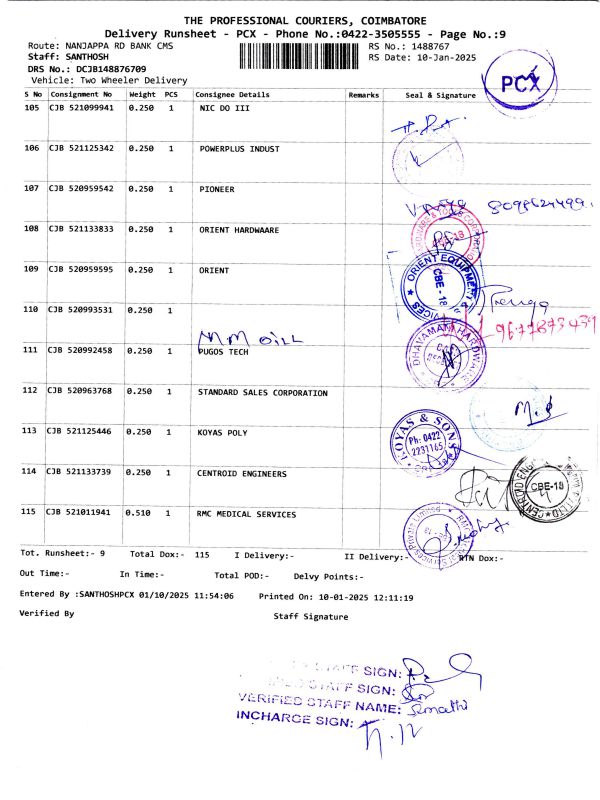 THE PROFESSIONAL COURIERS, COIMBATORE
Delivery Runsheet - PCX - Phone No.:0422-3505555 - Page No.:9
Route: NANJAPPA RD BANK CMS RS No.: 1488767
Staff: SANTHOSH RS Date: 10-Jan-2025
DRS No.: DCJB148876709
Vehicle: Two Wheeler Delivery
PCX
S No Consignment No Weight PCS Consignee Details Remarks Seal & Signature
105 CJB 521099941 0.250 1 NIC DO III
106 CJB 521125342 0.250 1 POWERPLUS INDUST
107 CJB 520959542 0.250 1 PIONEER
108 CJB 521133833 0.250 1 ORIENT HARDWAARE
109 CJB 520959595 0.250 1 ORIENT
ORIENT EQUIPMENT
CBE - 18
110 CJB 520993531 0.250 1
MM OILL
9677873439
111 CJB 520992458 0.250 1 PUGOS TECH
DHAVAMANI HARDWARE
112 CJB 520963768 0.250 1 STANDARD SALES CORPORATION
M.S
113 CJB 521125446 0.250 1 KOYAS POLY
KOYAS & SONS
Ph: 0422
2231165
114 CJB 521133739 0.250 1 CENTROID ENGINEERS
CBE-18
115 CJB 521011941 0.510 1 RMC MEDICAL SERVICES
Tot. Runsheet:- 9 Total Dox:- 115 I Delivery:- II Delivery:- RTN Dox:-
Out Time:- In Time:- Total POD:- Delvy Points:-
Entered By :SANTHOSHPCX 01/10/2025 11:54:06 Printed On: 10-01-2025 12:11:19
Verified By Staff Signature
STAFF SIGN:
STAFF SIGN:
VERIFIED STAFF NAME:
INCHARGE SIGN: